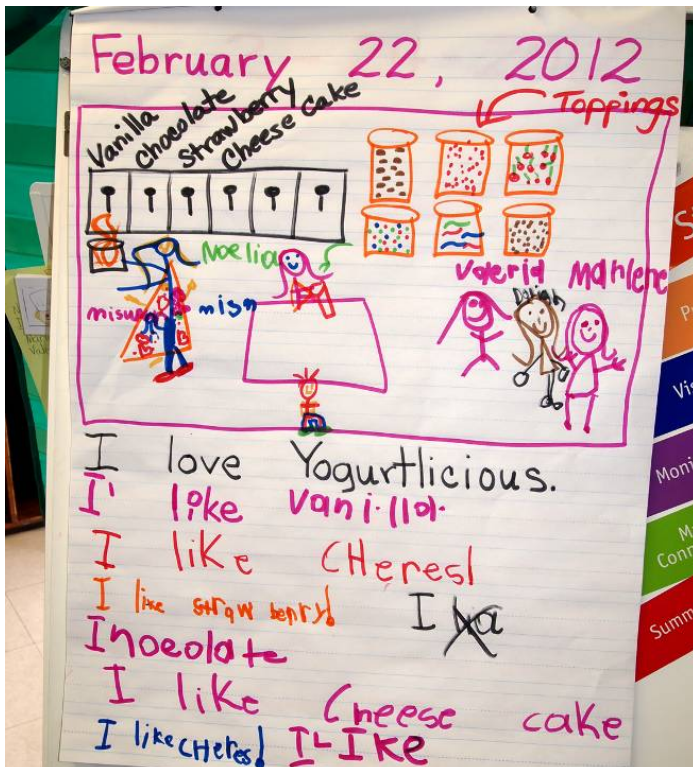 February 22, 2012
Toppings
Vanilla
chocolate
strawberry
cheese cake
Noelia
Valeria
Marlene
I love Yogurtlicious.
I like Vanilla.
I like CHeres!
I like straw berry!
I
Inocolate
I like Cheese cake
I like CHeres! I LIke
Summ